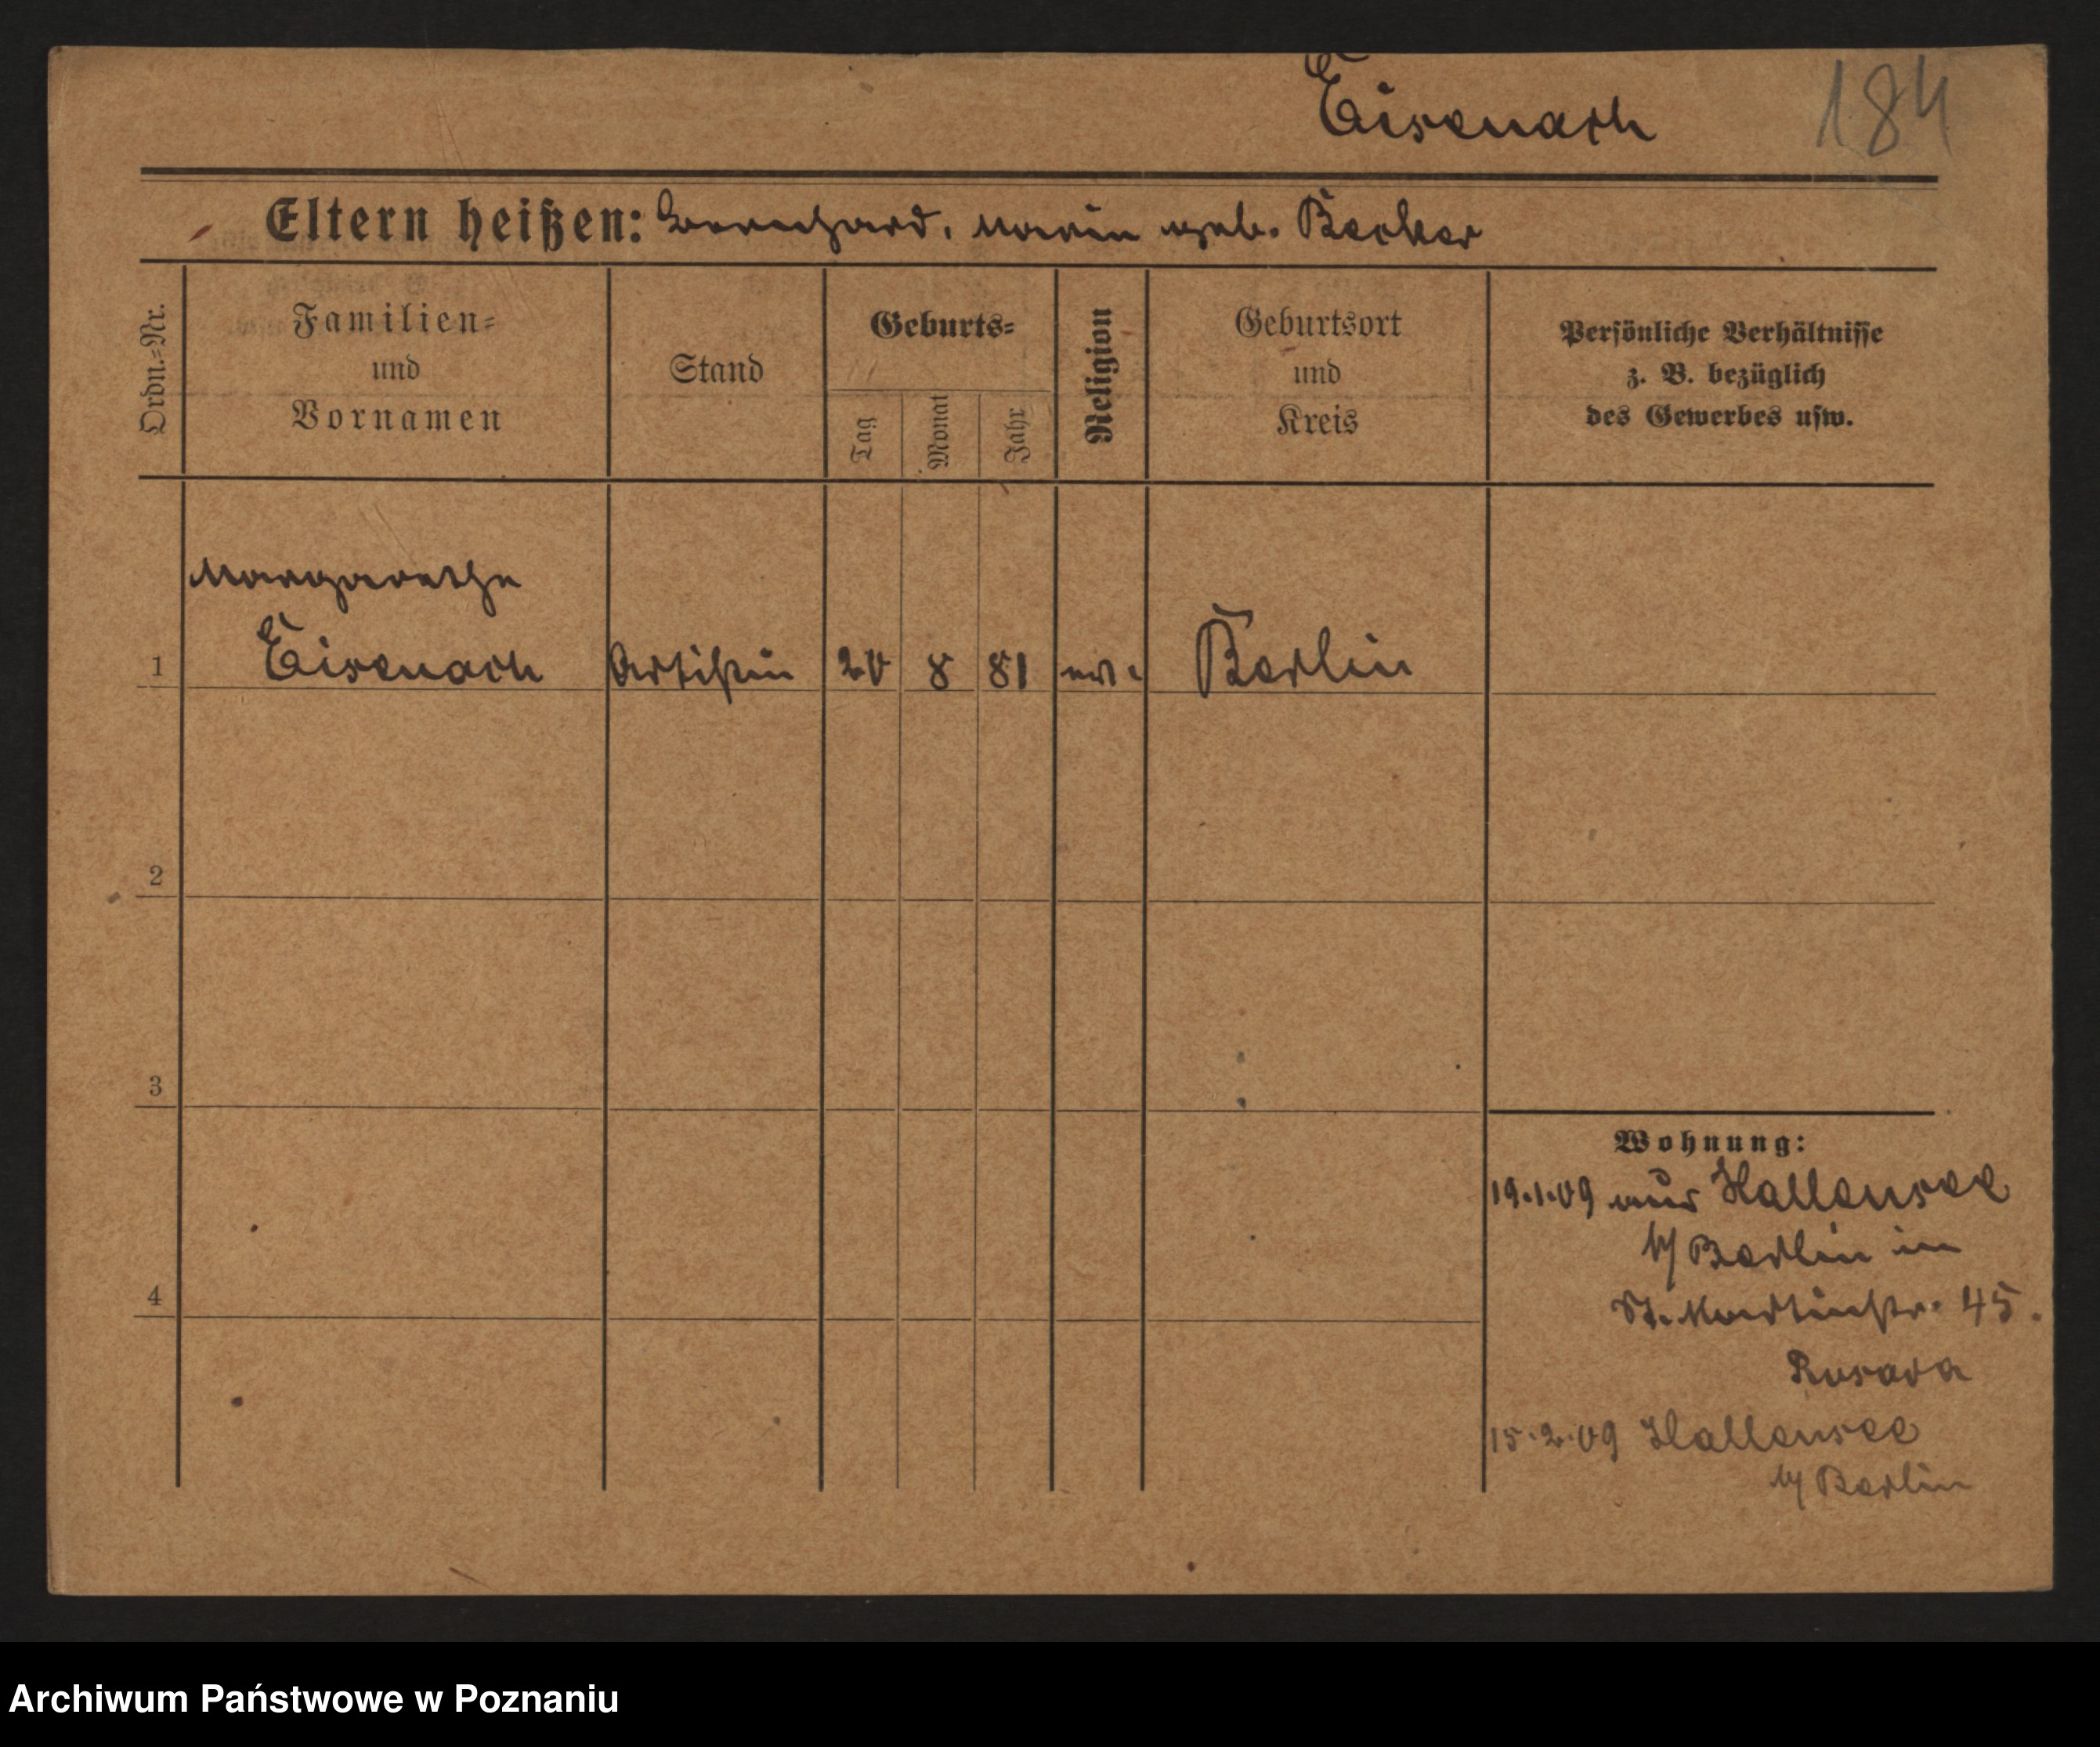 Eisenach
184
Eltern heißen: Bernhard, Marie geb. Becker
Ordn.=Nr.
Familien=
und
Vornamen
Stand
Geburts=
Tag
Monat
Jahr
Religion
Geburtsort
und
Kreis
Persönliche Verhältnisse
z. B. bezüglich
des Gewerbes usw.
Margarethe
1 Eisenach Artistin 20 8 81 ev. Berlin
2
3
4
Wohnung:
19.1.09 aus Hallensee
b/ Berlin in
St. Martinstr. 45.
15.2.09 Hallensee
b/ Berlin
Archiwum Państwowe w Poznaniu